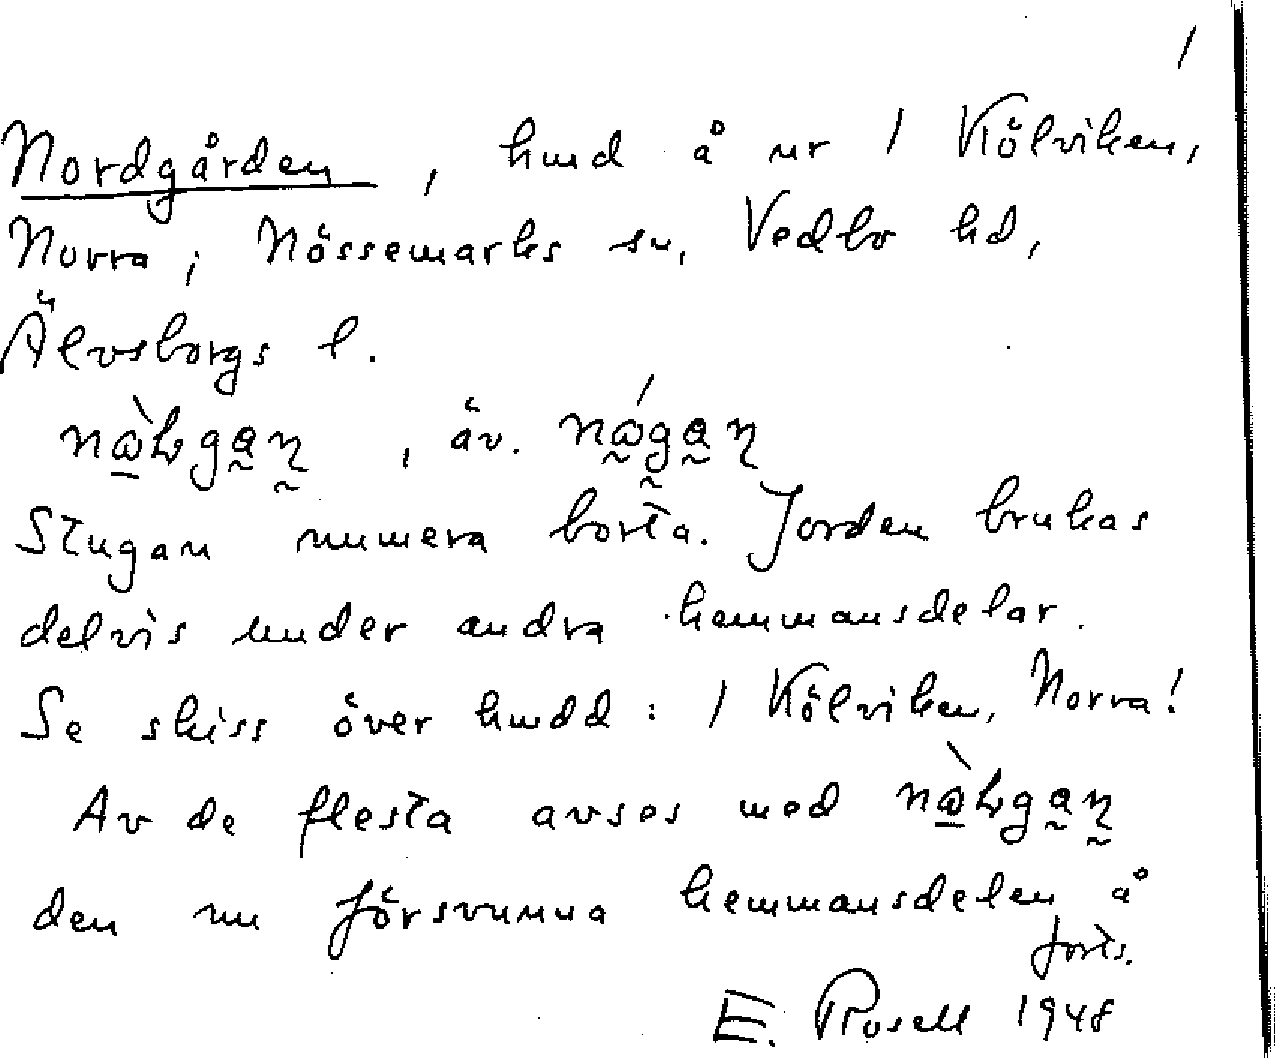 1
Nordgården, hmd å nr 1 Kölviken,
Norra, Nössemarks sn, Vedbo hd,
Älvsborgs l.
, äv.
Stugan numera borta. Jorden brukas
delvis under andra hemmansdelar.
Se skiss över hmdd: 1 Kölviken, Norra!
Av de flesta avses med
den nu försvunna hemmansdelen å
forts.
E. Rosell 1948